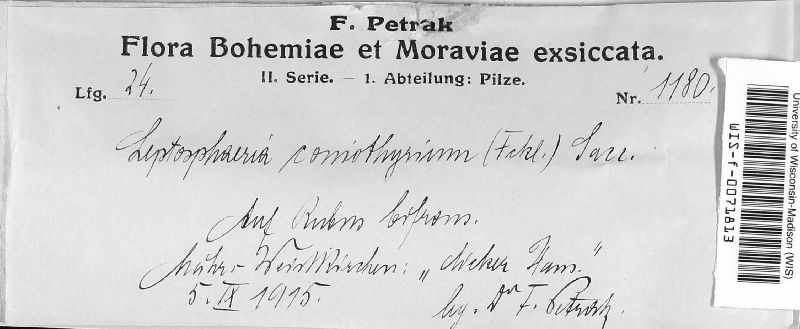 F. Petrak
Flora Bohemiae et Moraviae exsiccata.
II. Serie. — 1. Abteilung: Pilze.
Lfg. 24.
Nr. 1180.
Leptosphaeria coniothyrium (Fckl.) Sacc.
Auf Rubus bifrons.
Mähr.-Weisskirchen: „dicker Hans."
5. IX 1915.
lg. Dr F. Petrak.
University of Wisconsin-Madison (WIS)
WIS-f-0071813